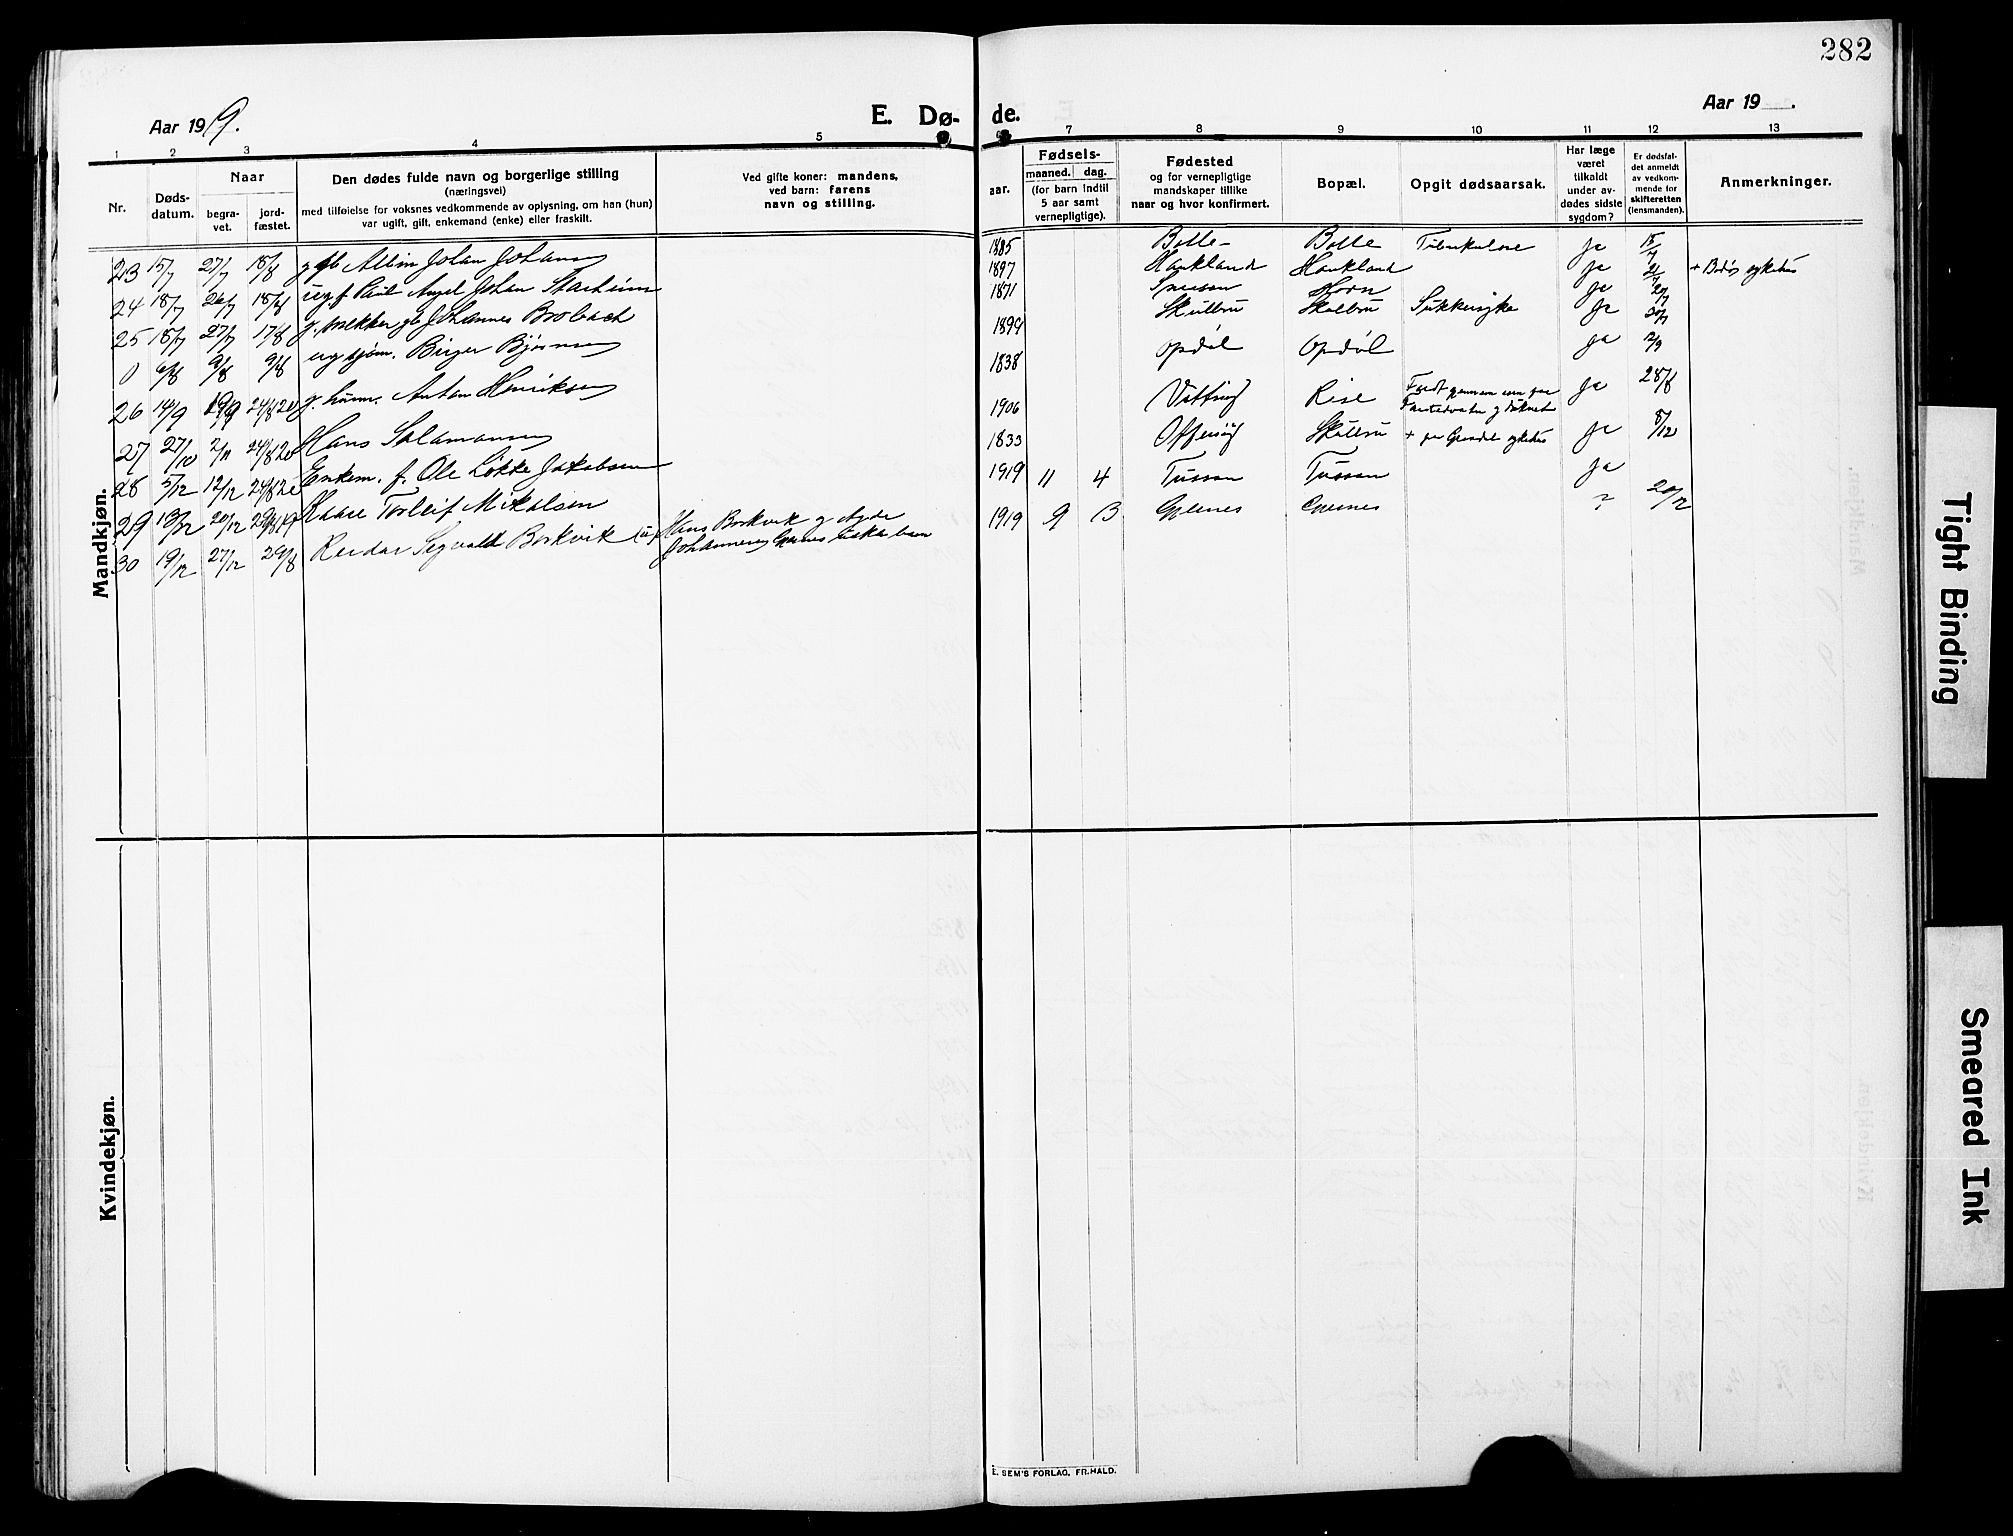 282
Aar 1919.
E. Dø-
de.
Aar 19 .
1 2 3 4 5 6 7 8 9 10 11 12 13
Nr.
Døds-
datum.
Naar
begra-
vet.
jord-
fæstet.
Den dødes fulde navn og borgerlige stilling
(næringsvei)
med tilføielse for voksnes vedkommende av oplysning, om han (hun)
var ugift, gift, enkemand (enke) eller fraskilt.
Ved gifte koner: mandens,
ved barn: farens
navn og stilling.
aar.
Fødsels-
maaned. dag.
(for barn indtil
5 aar samt
vernepligtige).
Fødested
og for vernepligtige
mandskaper tillike
naar og hvor konfirmert.
Bopæl.
Opgit dødsaarsak.
Har læge
været
tilkaldt
under av-
dødes sidste
sygdom?
Er dødsfal-
det anmeldt
av vedkom-
mende for
skifteretten
(lensmanden).
Anmerkninger.
Mandkjøn.
23 15/7 27/7 18/8 g Albin Johan Johansen 1885 Bolle Bolle Tuberkulose ja 15/7
24 18/7 26/7 18/8 ug f. Paul Angel Johan Starheim 1897 Haukland Haukland ja 21/7 + Bodø sykehus
25 18/7 27/7 17/8 g. Johannes Brobach 1871 Horn ja 20/7
0 6/8 9/8 9/8 ug sjøm. Birger Bjørnsen 1899 Skulbru Skulbru Sukkersyke ja 30/7
26 14/9 19/9 24/8 20 g. husm. Anton Henriksen 1838 Opdøl Opdøl ja 2/9
27 27/10 2/11 24/8 20 Hans Salamonsen 1906 Rise Faldt gjennem isen paa og druknet ja 28/8
28 5/12 12/12 24/8 20 Enkem. f. Ole Løkke Jakobsen 1833 Offersøy Skulbru + paa Gravdal sykehus ja 8/12
29 13/12 20/12 Kaare Torleif Mikalsen 1919 11 4 Tussan Tussan ja
30 19/12 27/12 29/8 Reidar Sigvald Borkvik (u) Hans Borkvik og Agda
Johannesen Gjernes uekta barn 1919 9 13 Gjernes Gjernes ? 20/12
Kvindekjøn.
E. SEM'S FORLAG, FR.HALD.
Tight Binding
Smeared Ink